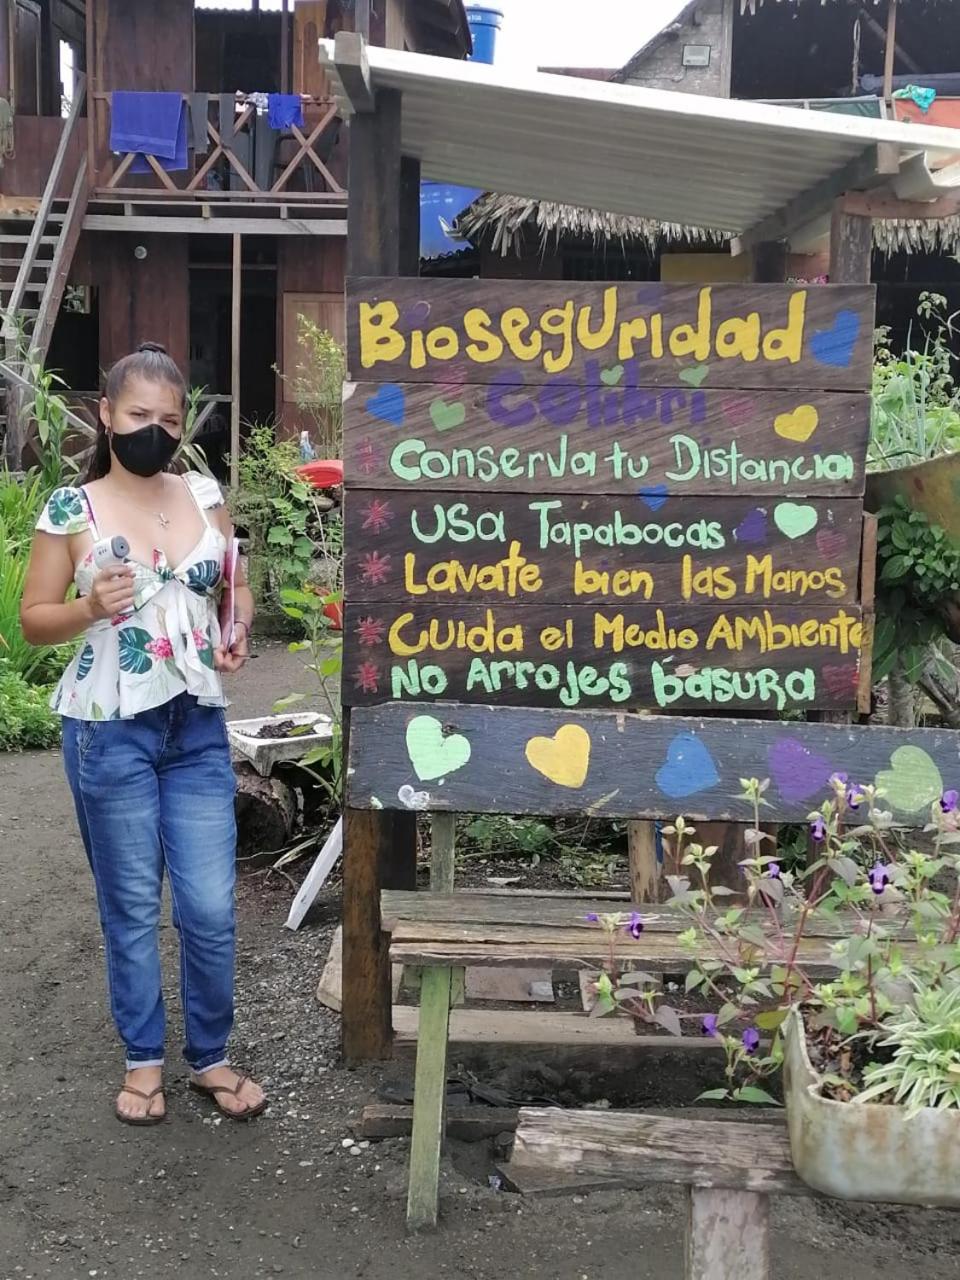 BioseguRidad
colibri
Conserva tu Distancia
USa Tapabocas
Lavate bien las Manos
CUida el Medio AMbiente
No Arrojes basuRa